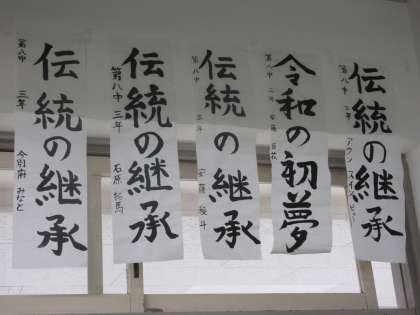 伝統の継承
第八中 二年 アウン
令和の初夢
第八中 二年
伝統の継承
第八中 三年 安藤
伝統の継承
第八中 三年 石原
伝統の継承
第八中 三年 今別府 みなと